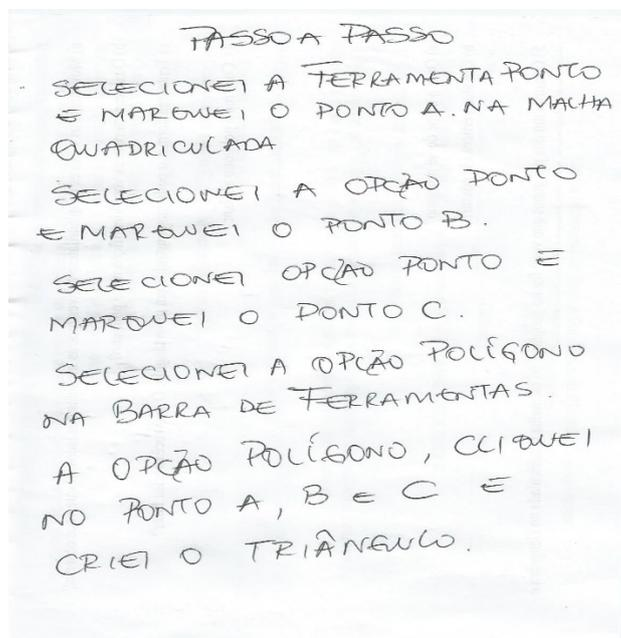 PASSO A PASSO
SELECIONEI A FERRAMENTA PONTO
E MARQUEI O PONTO A. NA MALHA
QUADRICULADA
SELECIONEI A OPÇÃO PONTO
E MARQUEI O PONTO B.
SELECIONEI OPÇÃO PONTO E
MARQUEI O PONTO C.
SELECIONEI A OPÇÃO POLÍGONO
NA BARRA DE FERRAMENTAS.
A OPÇÃO POLÍGONO, CLIQUEI
NO PONTO A, B E C E
CRIEI O TRIÂNGULO.